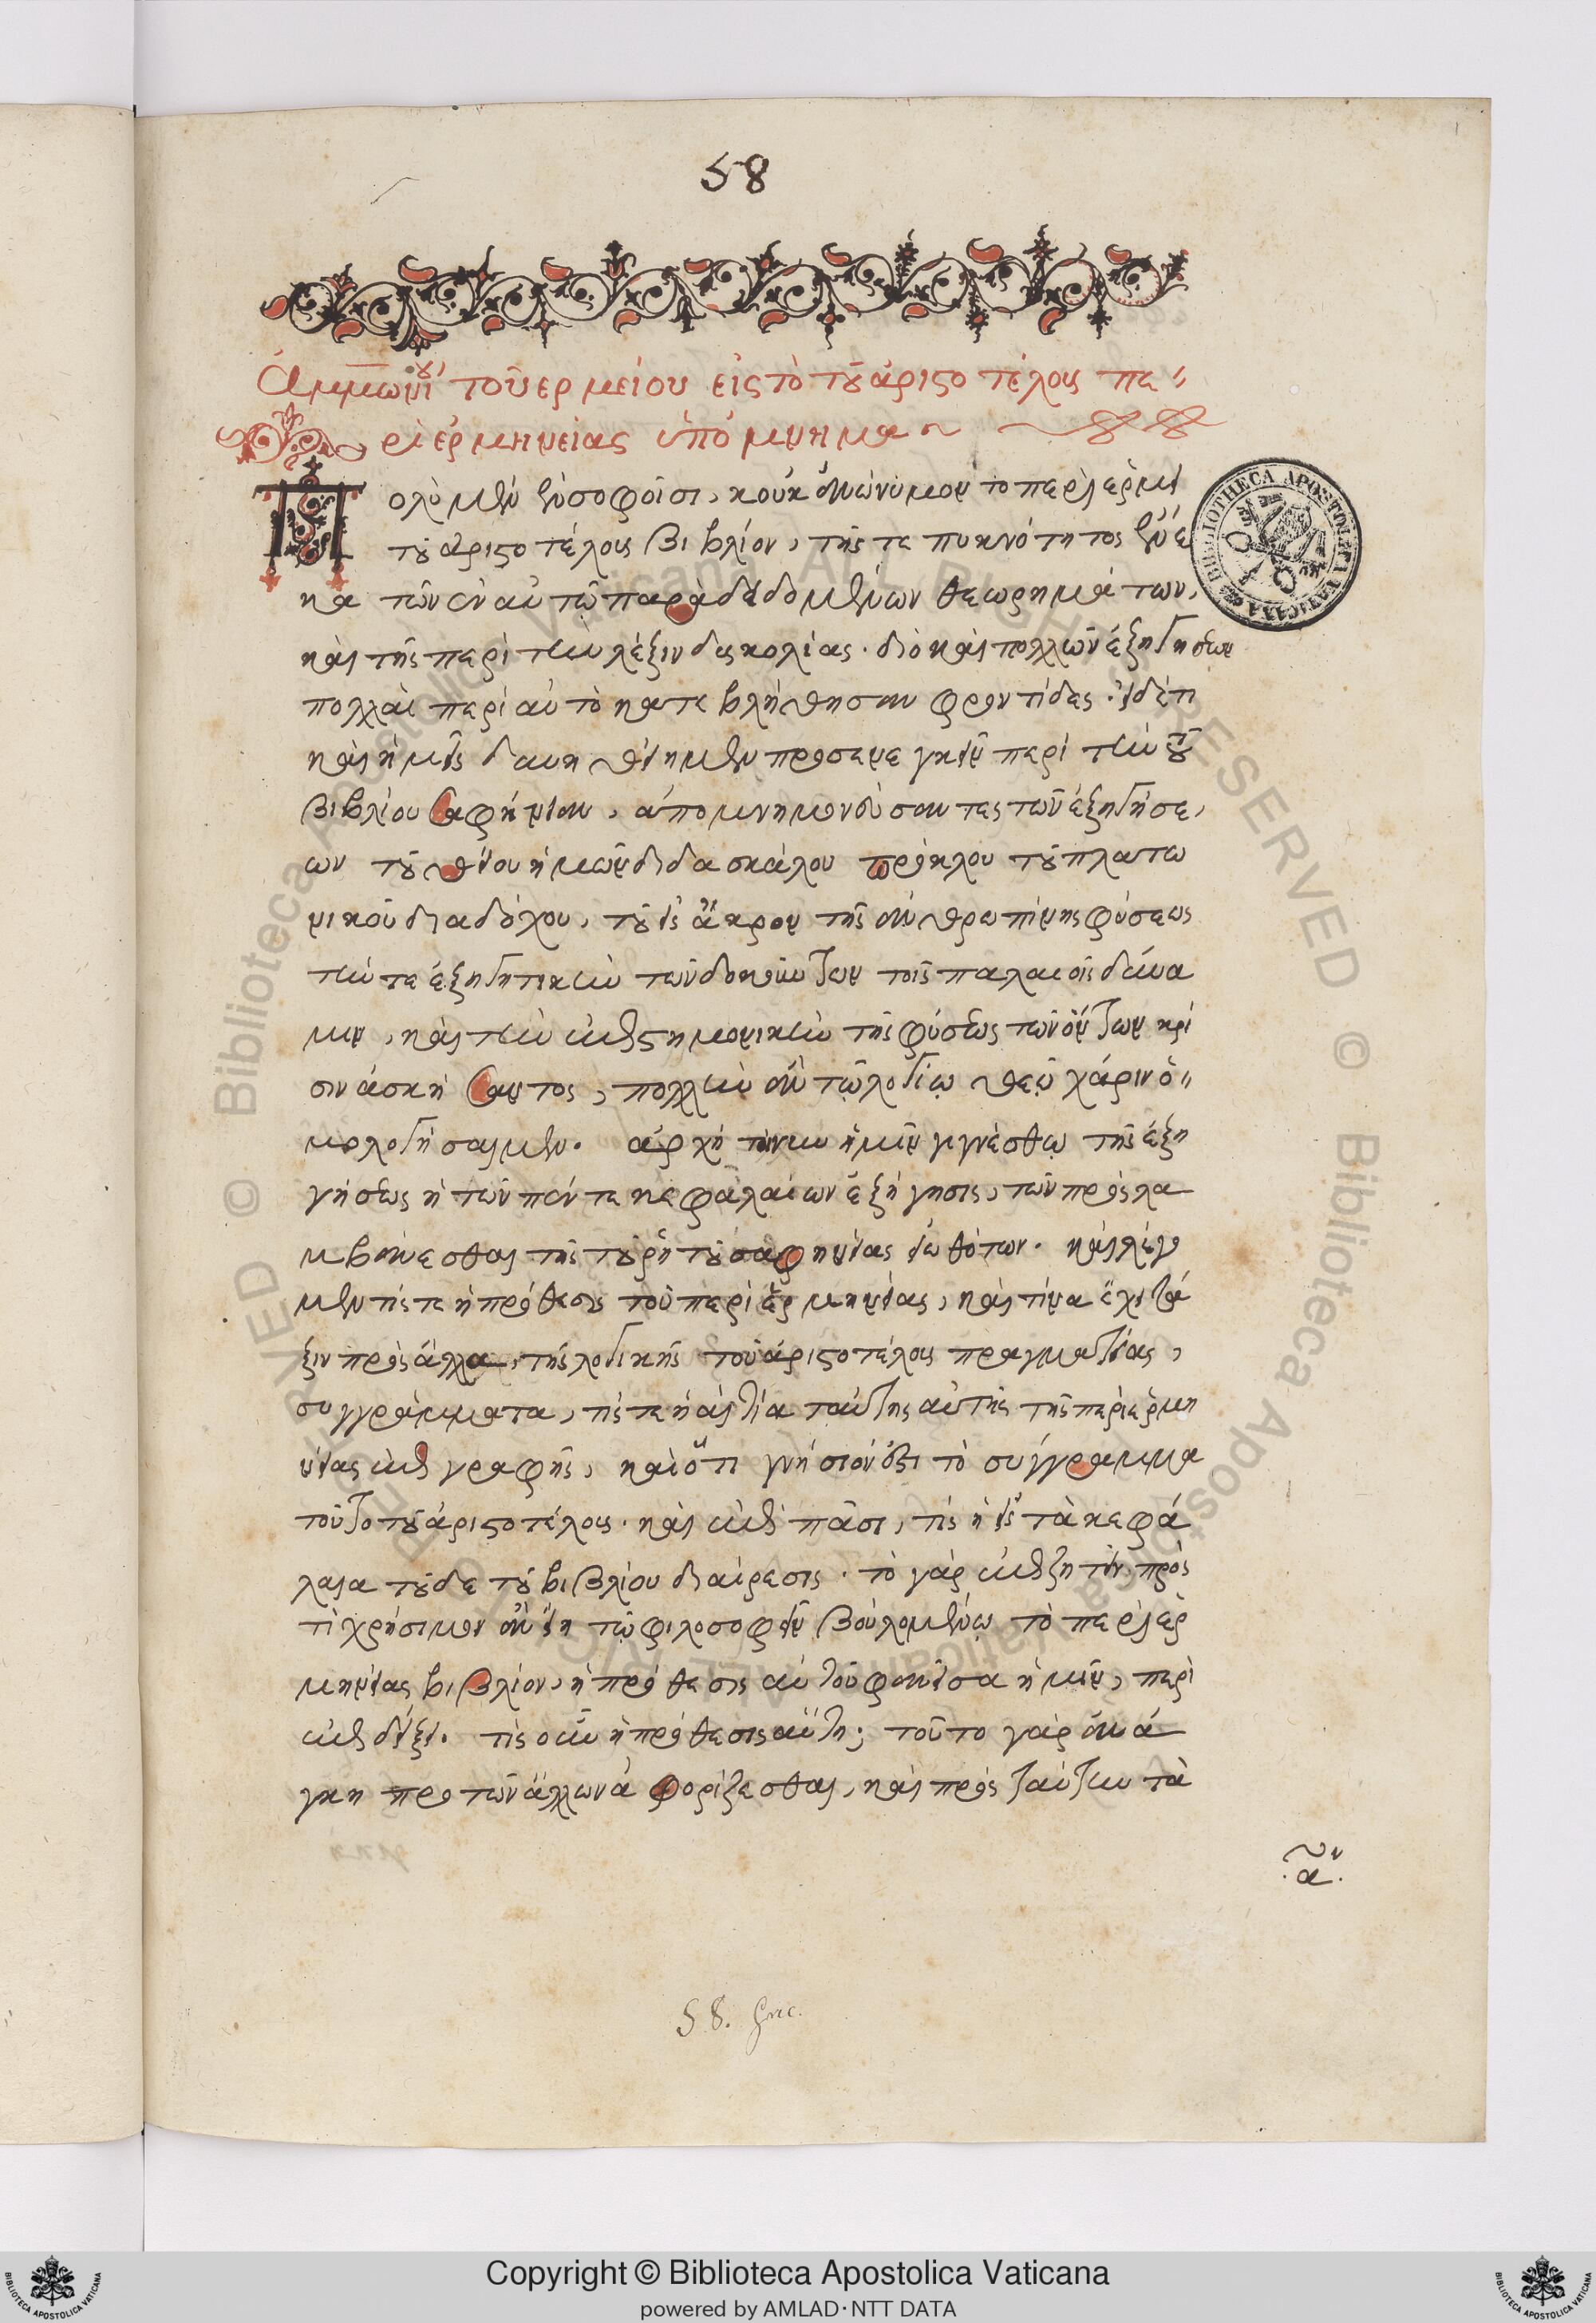 58
Ἀμμωνίου τοῦ ἑρμείου εἰς τὸ τοῦ ἀριστοτέλους πε
ρὶ ἑρμηνείας ὑπόμνημα
Πολὺ μὲν ἐν σοφοῖσι, κοὐκ ἀνώνυμον τὸ περὶ ἑρμ
τοῦ ἀριστοτέλους βιβλίον, τῆς τε πυκνότητος ἕνε
κα τῶν ἐν αὐτῷ παραδεδομένων θεωρημάτων,
καὶ τῆς περὶ τὴν λέξιν δυσκολίας. διὸ καὶ πολλῶν ἐξηγητῶν
πολλαὶ περὶ αὐτὸ κατεβλήθησαν φροντίδες. εἰ δέ τι
καὶ ἡμεῖς δυνηθείημεν προσενεγκεῖν περὶ τὴν τοῦ
βιβλίου σαφήνειαν, ἀπομνημονεύσαντες τῶν ἐξηγήσε,
ων τοῦ θείου ἡμῶν διδασκάλου πρόκλου τοῦ πλατω
νικοῦ διαδόχου, τοῦ εἰς ἄκρον τῆς ἀνθρωπίνης φύσεως
τήν τε ἐξηγητικὴν τῶν δοκούντων τοῖς παλαιοῖς δύνα
μιν, καὶ τὴν ἐπιστημονικὴν τῆς φύσεως τῶν ὄντων κρί
σιν ἀσκήσαντος, πολλὴν ἂν τῷ λογίῳ θεῷ χάριν ὁ
μολογήσαιμεν. ἀρχὴ τοίνυν ἡμῖν γιγνέσθω τῆς ἐξη
γήσεως ἡ τῶν πέντε κεφαλαίων ἐξήγησις, τῶν προσλα
μβάνεσθαι τῆς τοῦ ῥητοῦ σαφηνείας εἰωθότων. καὶ λέγω
μὲν τίς τε ἡ πρόθεσις τοῦ περὶ ἑρμηνείας, καὶ τίνα ἔχει τά
ξιν πρὸς ἄλλα, τῆς λογικῆς τοῦ ἀριστοτέλους πραγματείας,
συγγράμματα, τίς τε ἡ αἰτία ταύτης αὐτῆς τῆς περὶ ἑρμη
νείας ἐπιγραφῆς, καὶ ὅτι γνήσιόν ἐστι τὸ σύγγραμμα
τοῦτο τοῦ ἀριστοτέλους. καὶ ἐπὶ πᾶσι, τίς ἡ εἰς τὰ κεφά
λαια τοῦδε τοῦ βιβλίου διαίρεσις. τὸ γὰρ ἐπιζητεῖν, πρὸς
τί χρήσιμον ἂν εἴη τῷ φιλοσοφεῖν βουλομένῳ τὸ περὶ ἑρ
μηνείας βιβλίον, ἡ πρόθεσις αὐτοῦ φανεῖσα ἡμῖν, περι
επιδείξει. τίς οὖν ἡ πρόθεσις αὕτη; τοῦτο γὰρ ἀνά
γκη πρὸ τῶν ἄλλων ἀφορίζεσθαι, καὶ πρὸς ταύτην τὰ
.α.
58. Grec.
BIBLIOTHECA APOSTOLICA VATICANA
© Biblioteca Apostolica Vaticana ALL RIGHTS RESERVED
Copyright © Biblioteca Apostolica Vaticana
powered by AMLAD·NTT DATA